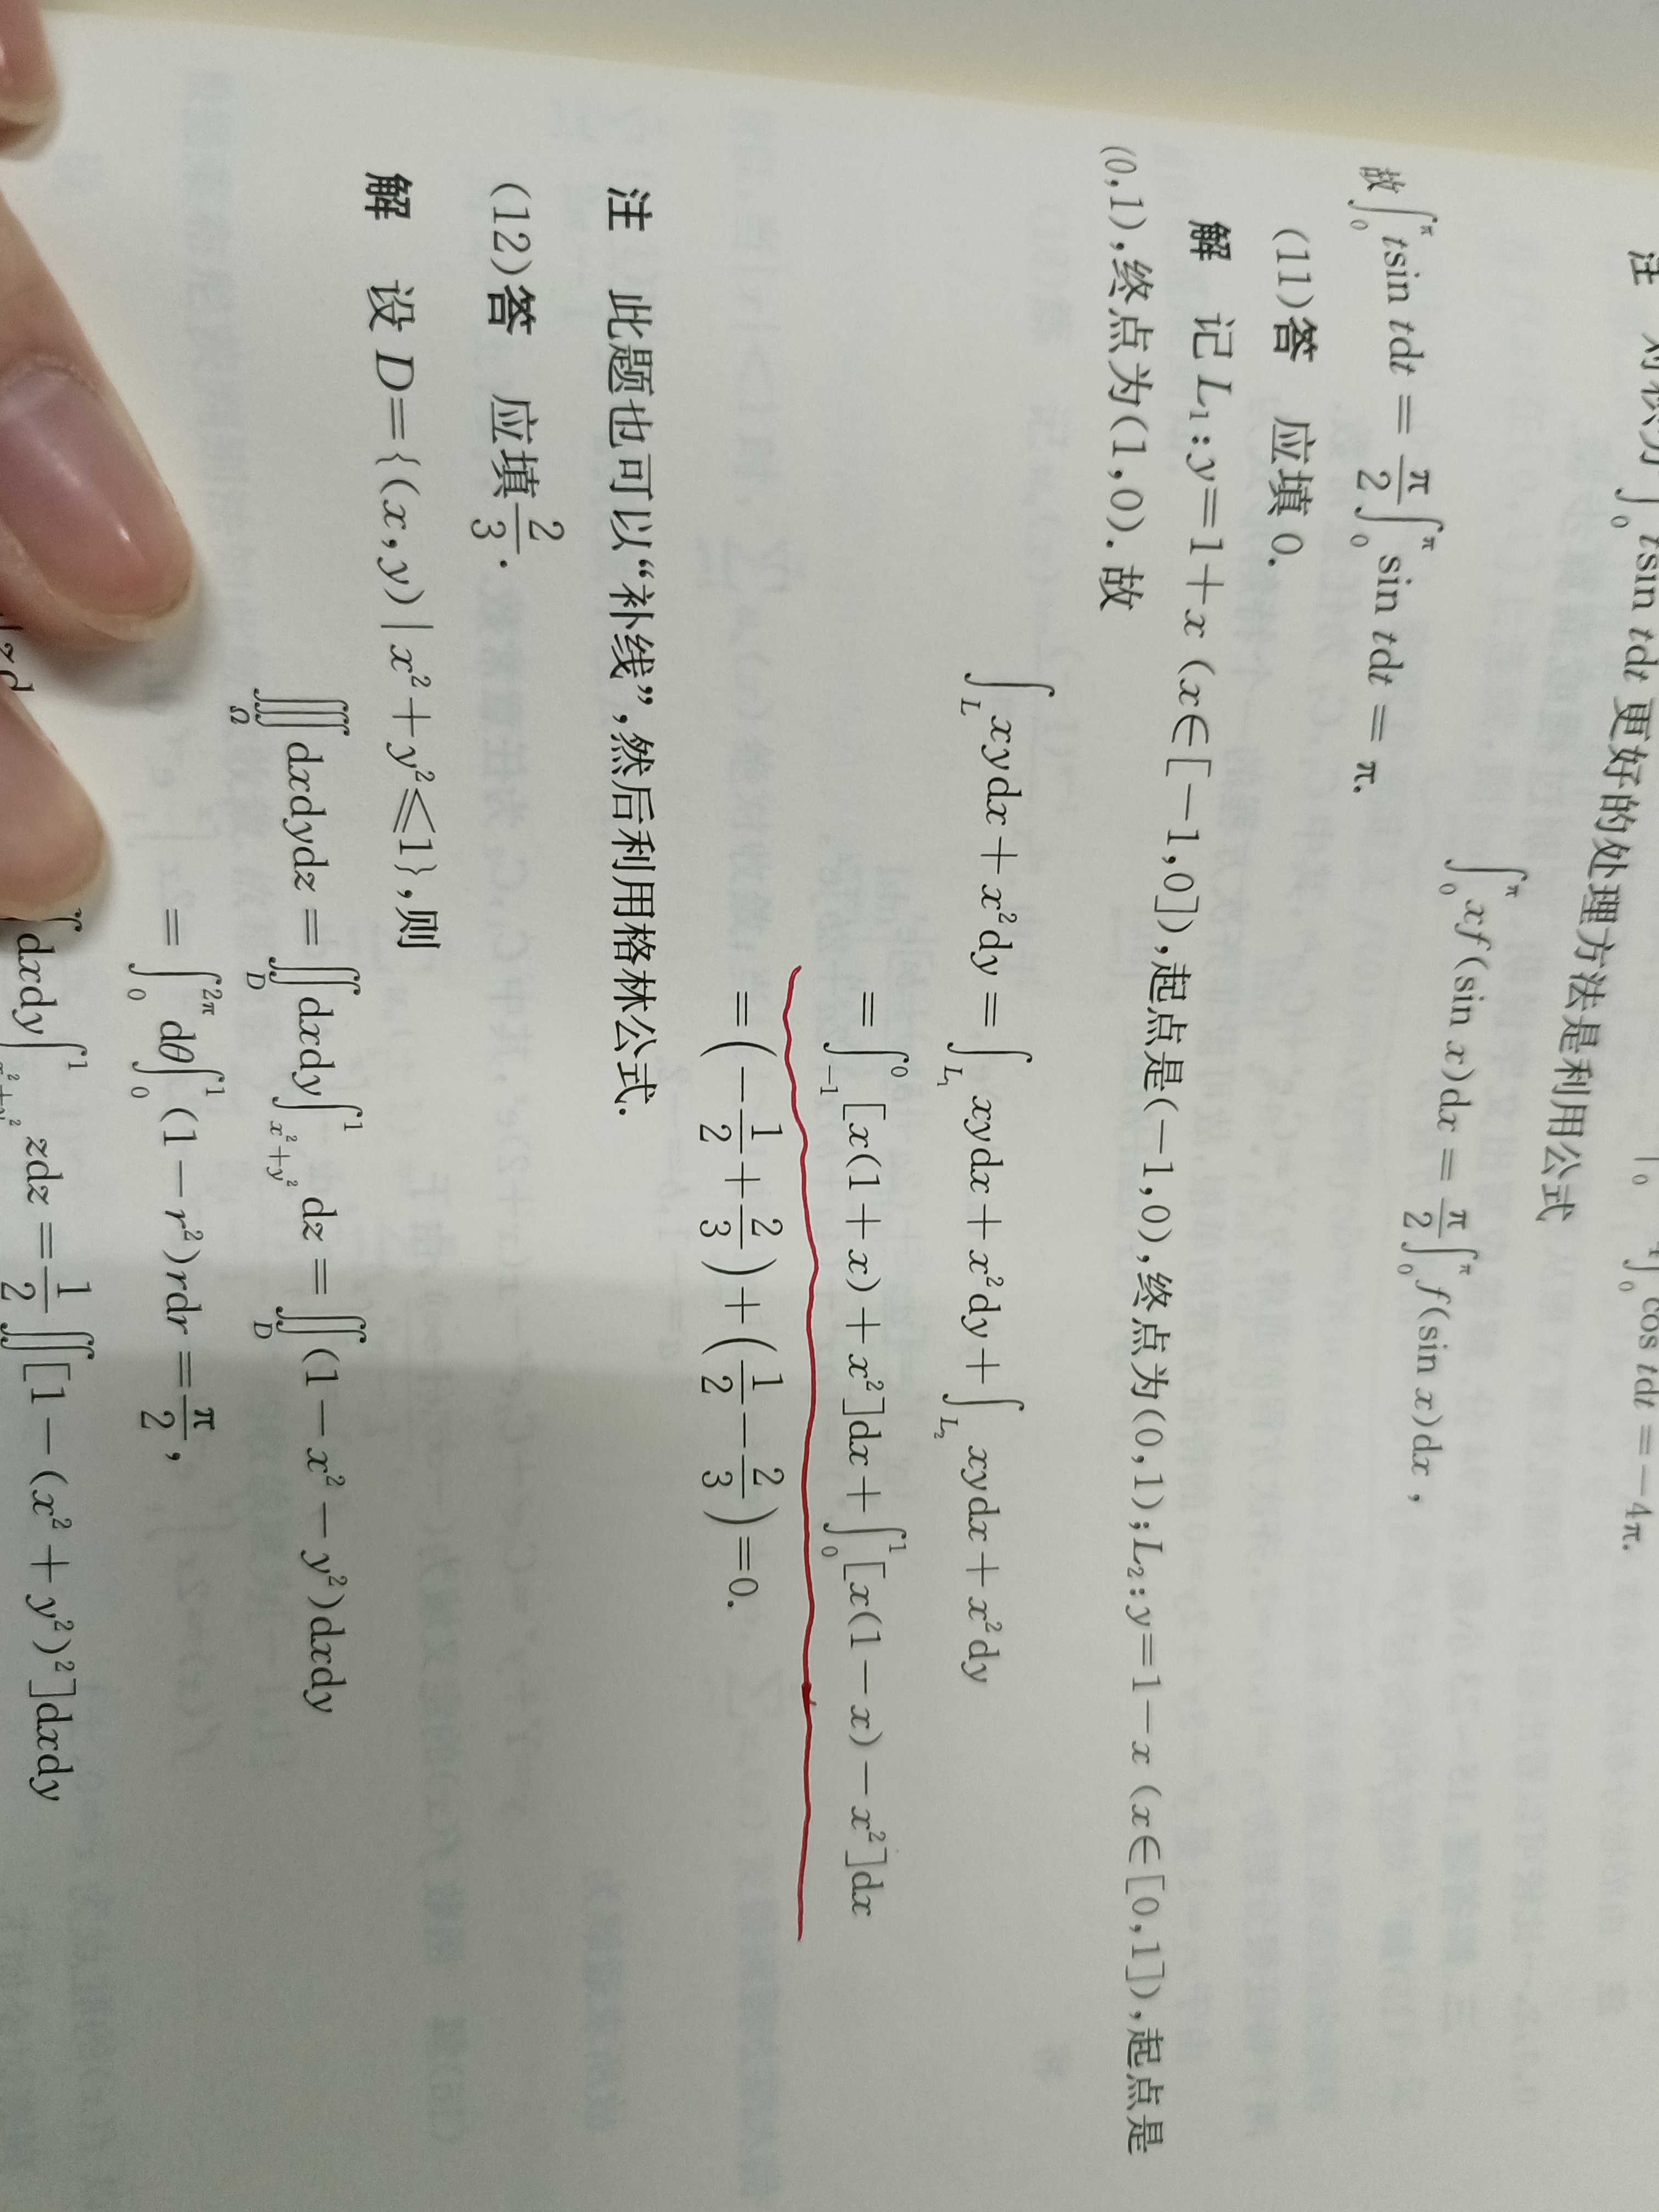 ∫₀ cos tdt = −4π.
注 对积分∫₀ tsin tdt 更好的处理方法是利用公式
∫₀^π xf(sin x)dx = π/2 ∫₀^π f(sin x)dx,
故∫₀^π tsin tdt = π/2 ∫₀^π sin tdt = π.
(11)答 应填 0.
解 记 L₁:y=1+x (x∈[−1,0]),起点是(−1,0),终点为(0,1);L₂:y=1−x (x∈[0,1]),起点是
(0,1),终点为(1,0). 故
∫_L xydx+x²dy = ∫_{L₁} xydx+x²dy+∫_{L₂} xydx+x²dy
= ∫₋₁⁰ [x(1+x)+x²]dx+∫₀¹ [x(1−x)−x²]dx
= (−1/2+2/3)+(1/2−2/3)=0.
注 此题也可以“补线”,然后利用格林公式.
(12)答 应填 2/3.
解 设 D={(x,y)|x²+y²≤1},则
∭_Ω dxdydz = ∬_D dxdy∫_{x²+y²}^1 dz = ∬_D (1−x²−y²)dxdy
= ∫₀^{2π} dθ∫₀¹ (1−r²)rdr = π/2,
dxdy∫_{x²+y²}^1 zdz = 1/2 ∬[1−(x²+y²)²]dxdy